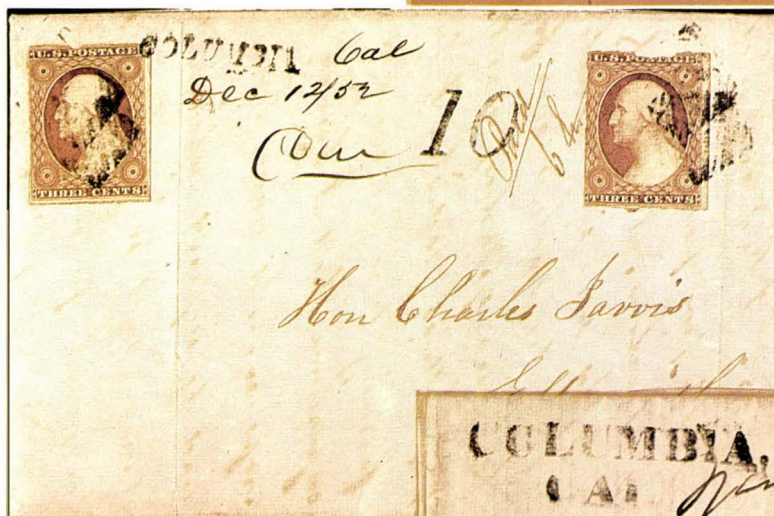 U.S. POSTAGE
THREE CENTS
COLUMBIA Cal
Dec 12/52
10
Paid
U.S. POSTAGE
THREE CENTS
Hon Charles Jarvis
COLUMBIA,
CAL